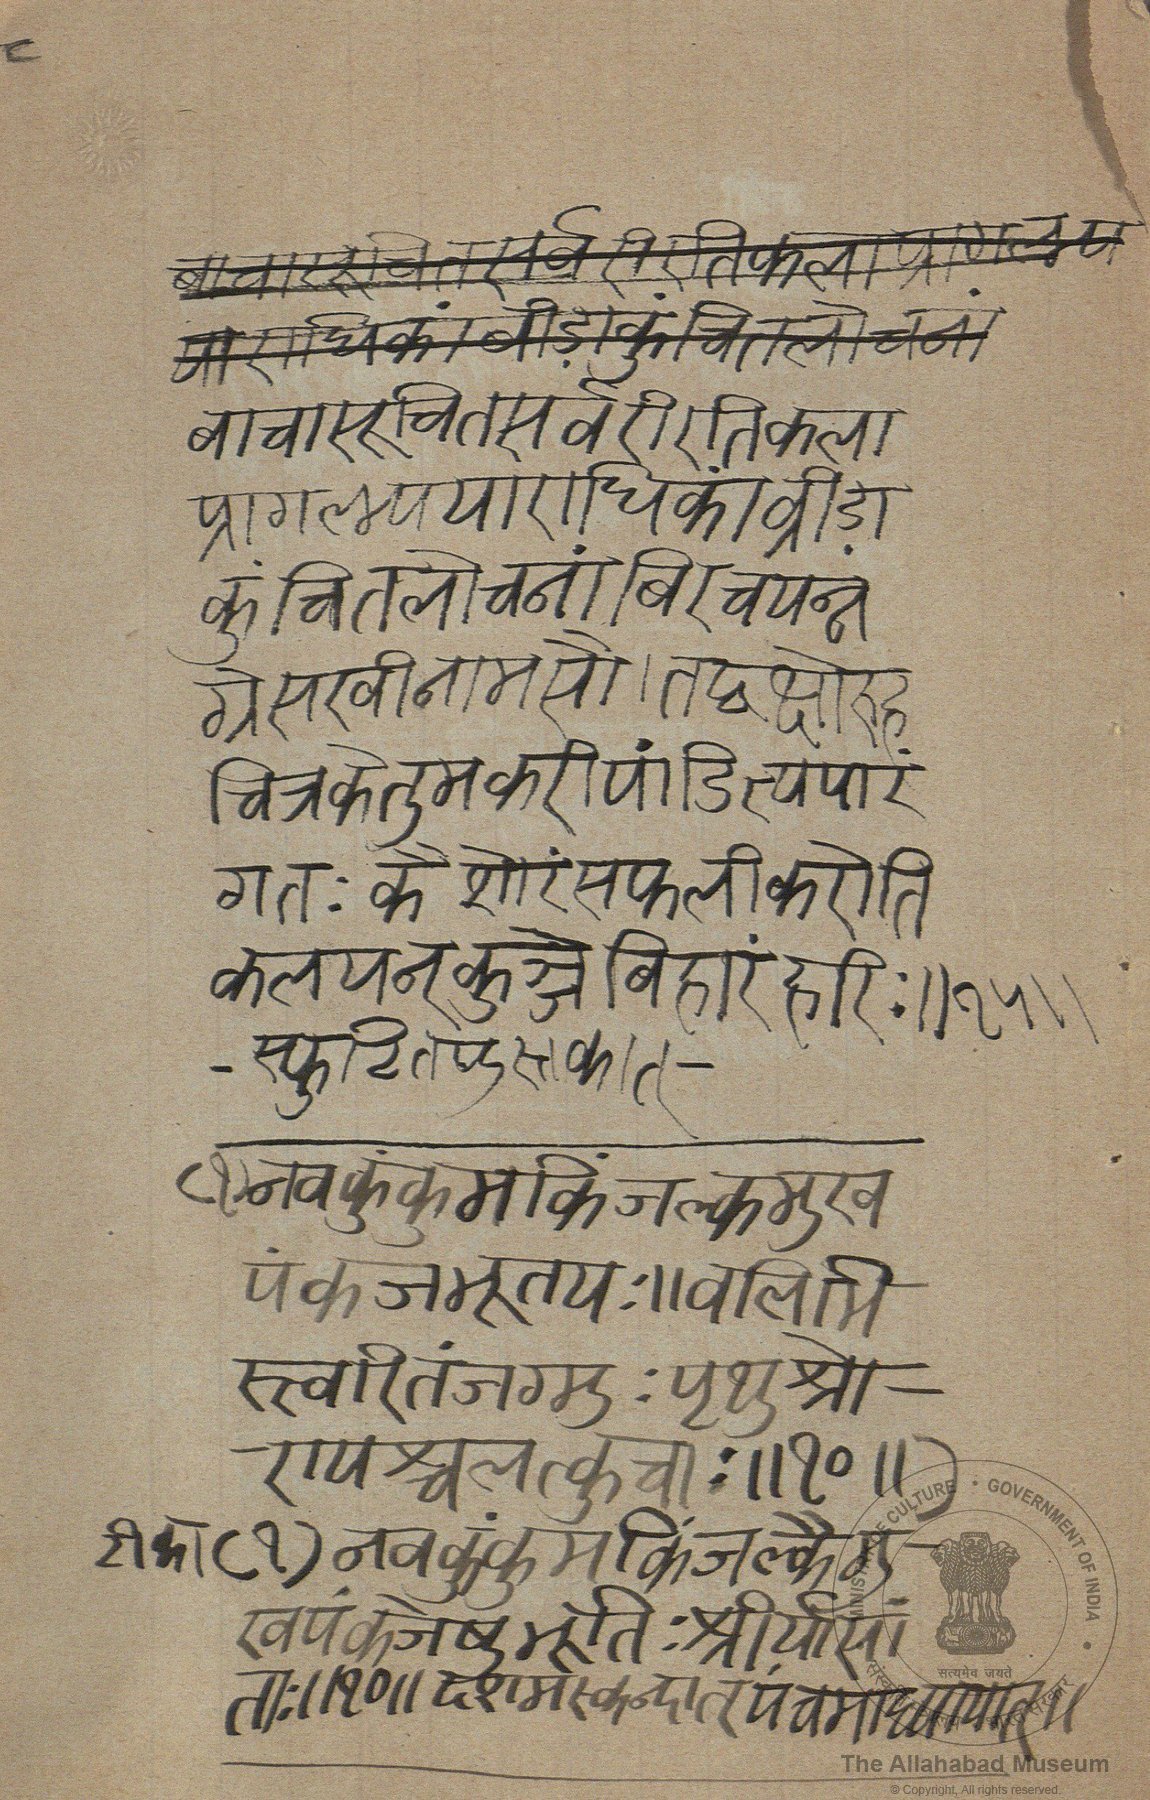 बाचासूचितसर्वरीरतिकलाप्रागल्भ्य
याराधिकांब्रीड़ाकुंचितलोचनां
बाचासूचितसर्वरीरतिकला
प्रागल्भ्ययाराधिकांव्रीड़ा
कुंचितलोचनांबिरचयन्न
ग्रेसखीनामसौ।तद्वक्षोरुह
चित्रकेलुमकरीपांडित्यपारं
गतः कैशोरंसफलीकरोति
कलयन्कुञ्जेबिहारंहरिः॥२५॥
- स्फुटितपुस्तकात् -
(१)नवकुंकुमकिंजल्कमुख
पंकजभूतयः॥वलिभि
स्त्वरितंजग्मुः पृथुश्रो-
-रायश्चलत्कुचाः॥१०॥)
टीका(१)नवकुंकुमकिंजल्कैर्मु-
खपंकजेषुभूतिः श्रीर्यासां
ताः॥१०॥दशमस्कन्दात्पंचमाध्यायात्॥
MINISTRY OF CULTURE • GOVERNMENT OF INDIA •
सत्यमेव जयते
The Allahabad Museum
© Copyright, All rights reserved.